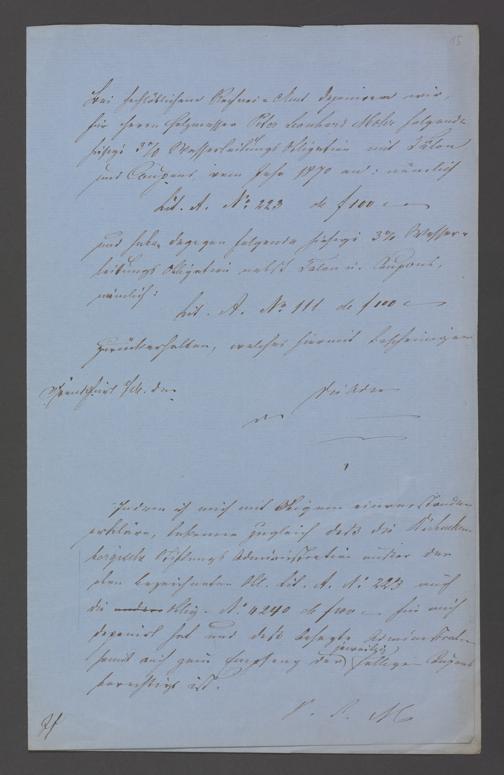 15
Bei hochlöblichem Rechnei-Amt deponiren wir,
für Herrn Holzmesser Peter Leonhard Mohr folgende
hiesige 3% Wasserleitungs Obligation mit Talon
und Coupons vom Jahr 1870 an: nämlich
Lit. A. No 223 de f 100
und haben dagegen folgende hiesige 3% Wasser-
leitungs Obligation nebst Talon u. Coupons,
nämlich:
Lit. A. No 111 de f 100
zurückerhalten, welches hiermit bescheinigen
Frankfurt a/M. den
Indem ich mich mit Obigem einverstanden
erkläre, bekenne zugleich daß die
Stiftungs Administration außer der
oben bezeichneten Obl. Lit. A. No 223 auch
die andere Oblig. No 4240 de f 100 für mich
deponirt hat und daß besagte Administration
somit auch zum Empfang der jeweilig fälligen Coupons
berechtigt ist.
P. L. M